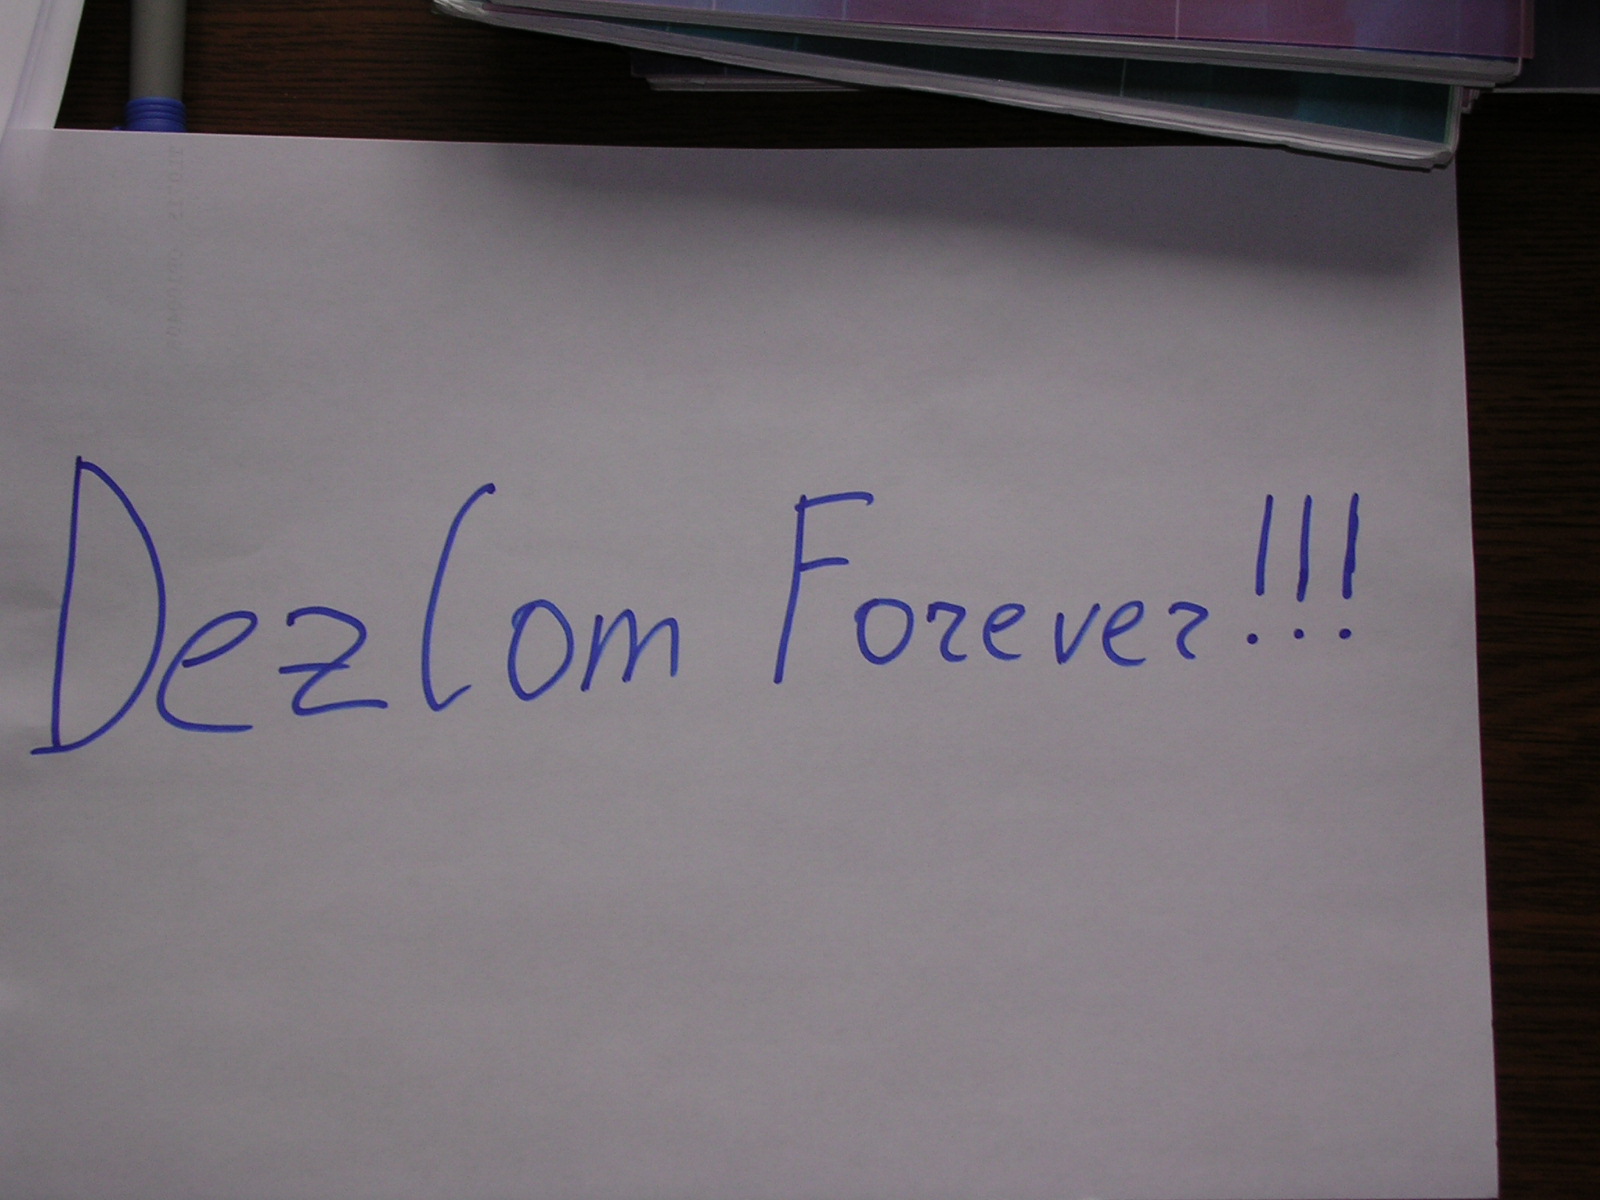 DezCom Forever!!!